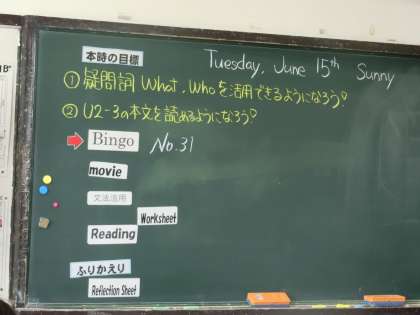 本時の目標
Tuesday, June 15th Sunny
① 疑問詞 What, Whoを活用できるようになろう。
② U2-3の本文を読めるようになろう。
Bingo No.31
movie
文法活用
Worksheet
Reading
ふりかえり
Reflection Sheet